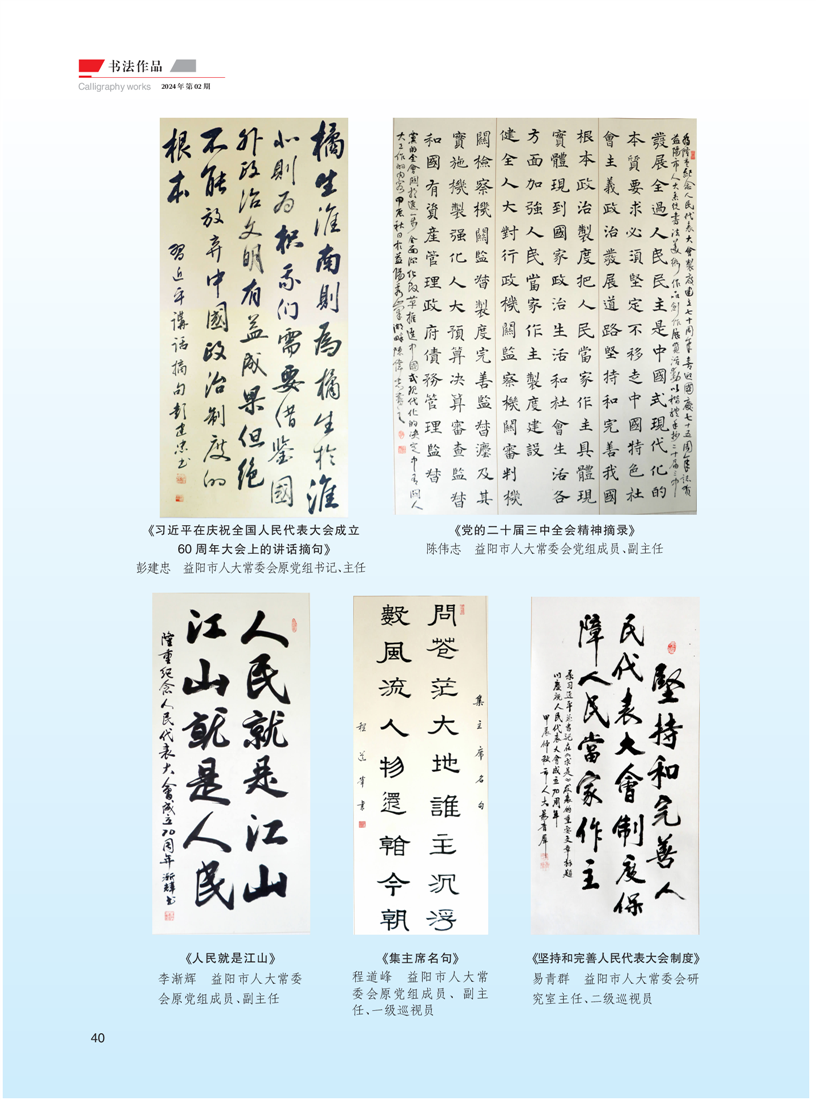 书法作品
Calligraphy works 2024年第02期
橘生淮南則為橘生於淮
北則为枳我们需要借鉴國
外政治文明有益成果但绝
不能放弃中國政治制度的
根本
習近平講話摘句彭建忠书
發展全過人民民主是中國式現代化的
本質要求必須堅定不移走中國特色社
會主義政治發展道路堅持和完善我國
根本政治製度把人民當家作主具體現
實體現到國家政治生活和社會生活各
方面加強人民當家作主製度建設
健全人大對行政機關監察機關審判機
關檢察機關監督製度完善監督灋及其
實施機製强化人大預算決算審查監督
和國有資産管理政府債務管理監督
《习近平在庆祝全国人民代表大会成立
60周年大会上的讲话摘句》
彭建忠 益阳市人大常委会原党组书记、主任
《党的二十届三中全会精神摘录》
陈伟志 益阳市人大常委会党组成员、副主任
人民就是江山
江山就是人民
隆重纪念人民代表大会成立70周年渐輝书
問苍茫大地誰主沉浮
數風流人物還看今朝
集主席名句
程道峰書
堅持和完善人
民代表大會制度保
障人民當家作主
以慶祝人民代表大會成立70周年
《人民就是江山》
李渐辉 益阳市人大常委
会原党组成员、副主任
《集主席名句》
程道峰 益阳市人大常
委会原党组成员、副主
任、一级巡视员
《坚持和完善人民代表大会制度》
易青群 益阳市人大常委会研
究室主任、二级巡视员
40